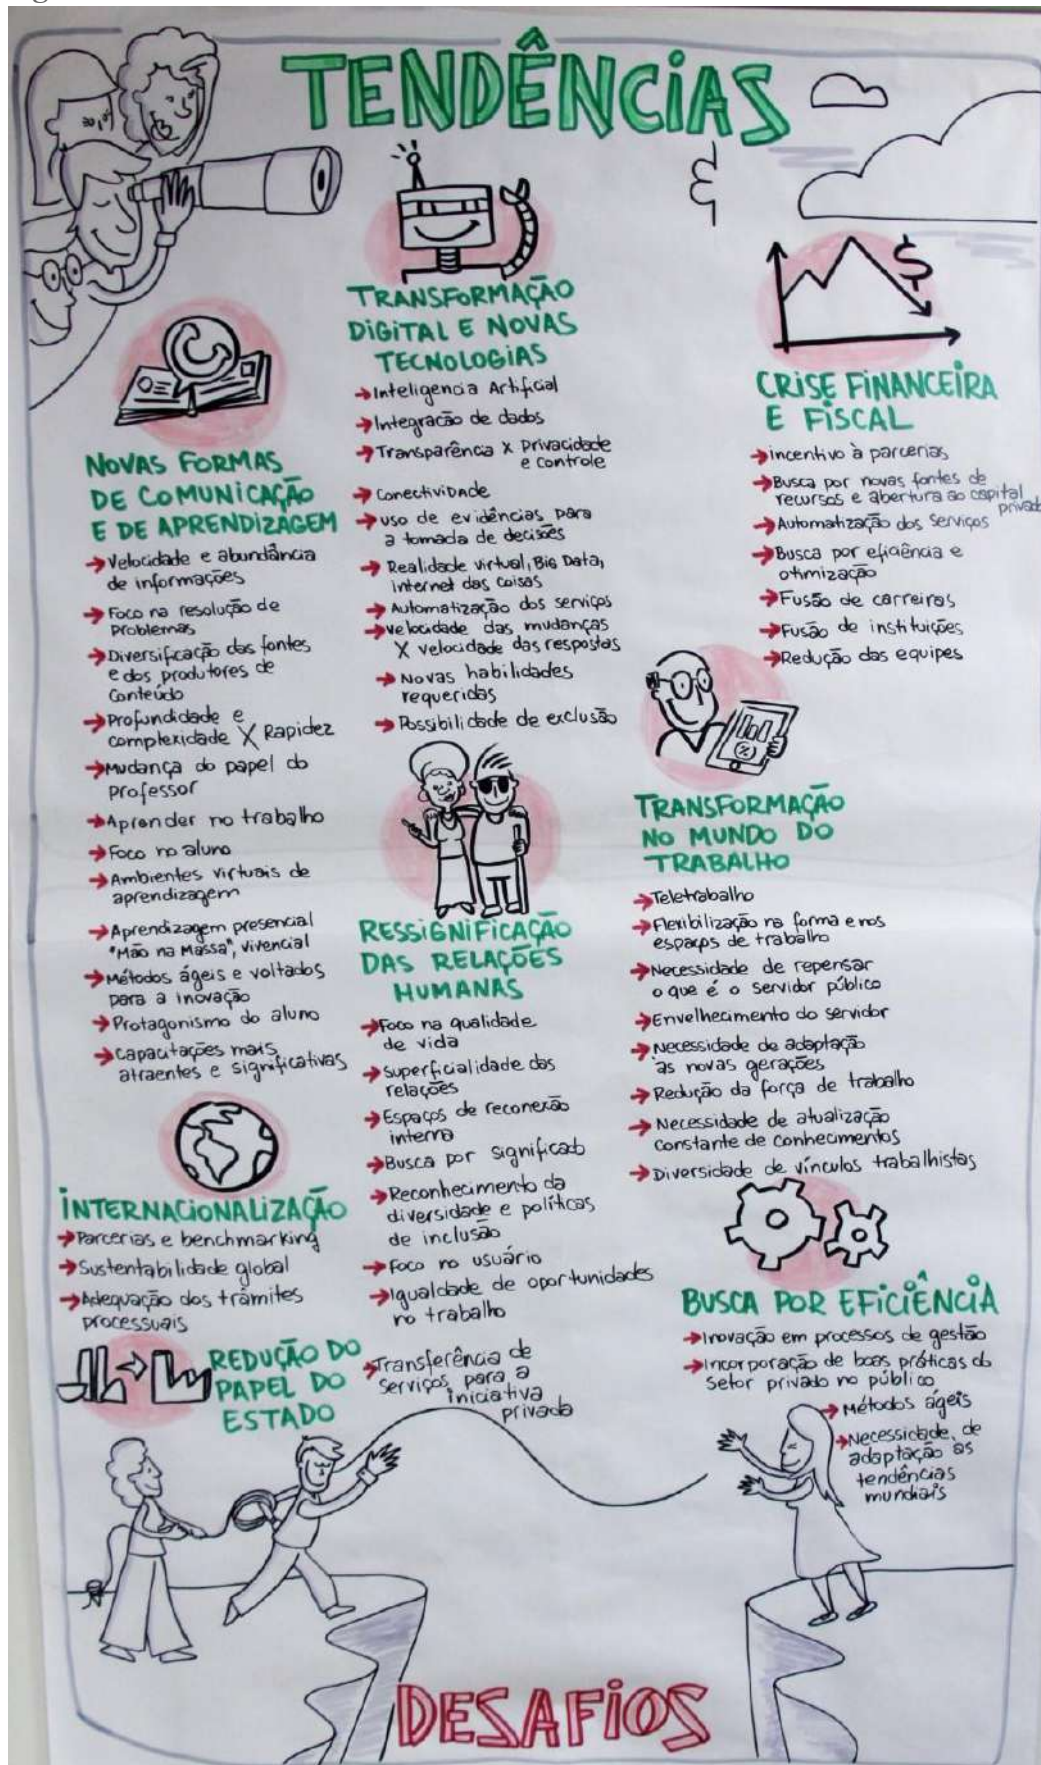 TENDÊNCIAS
&
NOVAS FORMAS
DE COMUNICAÇÃO
E DE APRENDIZAGEM
→Velocidade e abundância
de informações
→Foco na resolução de
problemas
→Diversificação das fontes
e dos produtores de
conteúdo
→Profundidade e
complexidade X Rapidez
→Mudança do papel do
professor
→Aprender no trabalho
→Foco no aluno
→Ambientes virtuais de
aprendizagem
→Aprendizagem presencial
"Mão na Massa", vivencial
→Métodos ágeis e voltados
para a inovação
→Protagonismo do aluno
→Capacitações mais
atraentes e significativas
INTERNACIONALIZAÇÃO
→Parcerias e benchmarking
→Sustentabilidade global
→Adequação dos trâmites
processuais
TRANSFORMAÇÃO
DIGITAL E NOVAS
TECNOLOGIAS
→Inteligencia Artificial
→Integração de dados
→Transparência X Privacidade
e controle
→Conectividade
→uso de evidências para
a tomada de decisões
→Realidade virtual, Big Data,
internet das coisas
→Automatização dos serviços
→velocidade das mudanças
X velocidade das respostas
→Novas habilidades
requeridas
→Possibilidade de exclusão
RESSIGNIFICAÇÃO
DAS RELAÇÕES
HUMANAS
→Foco na qualidade
de vida
→Superficialidade das
relações
→Espaços de reconexão
interna
→Busca por significado
→Reconhecimento da
diversidade e políticas
de inclusão
→Foco no usuário
→Igualdade de oportunidades
no trabalho
REDUÇÃO DO
PAPEL DO
ESTADO
→Transferência de
serviços para a
iniciativa
privada
$
CRISE FINANCEIRA
E FISCAL
→incentivo à parcerias
→Busca por novas fontes de
recursos e abertura ao capital
privado
→Automatização dos serviços
→Busca por eficiência e
otimização
→Fusão de carreiras
→Fusão de instituições
→Redução das equipes
%
TRANSFORMAÇÃO
NO MUNDO DO
TRABALHO
→Teletrabalho
→Flexibilização na forma e nos
espaços de trabalho
→Necessidade de repensar
o que é o servidor público
→Envelhecimento do servidor
→Necessidade de adaptação
às novas gerações
→Redução da força de trabalho
→Necessidade de atualização
constante de conhecimentos
→Diversidade de vínculos trabalhistas
BUSCA POR EFICIÊNCIA
→Inovação em processos de gestão
→Incorporação de boas práticas do
setor privado no público
→Métodos ágeis
→Necessidade de
adaptação as
tendências
mundiais
DESAFIOS